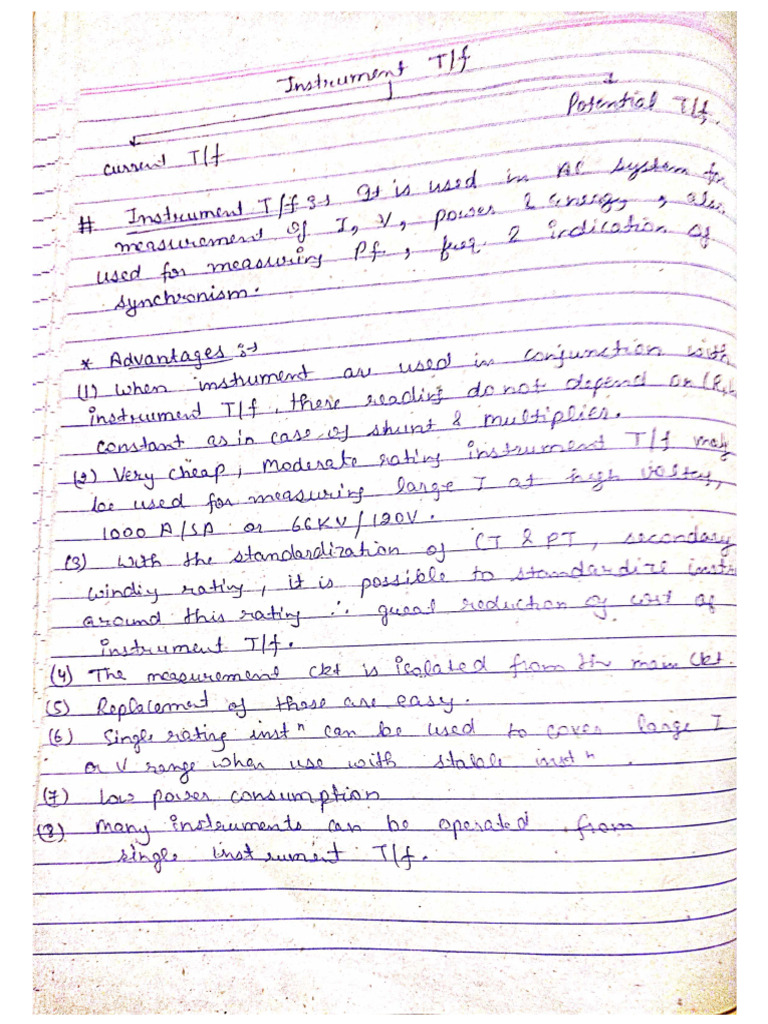 Instrument T/f
Potential T/f.
Current T/f
# Instrument T/f :→ It is used in AC system for
measurement of I, V, power & energy, also
used for measuring Pf, freq. & indication of
synchronism.
* Advantages :→
(1) When instrument are used in conjunction with
instrument T/f, there reading do not depend on (R, L
constant as in case of shunt & multiplier.
(2) Very cheap, moderate rating instrument T/f may
be used for measuring large I at high voltay,
1000 A/5A or 66KV/120V.
(3) With the standardization of CT & PT, secondary
windig rating, it is possible to standardize instr
around this rating ∴ great reduction of cost of
instrument T/f.
(4) The measurement ckt is isolated from the main ckt.
(5) Replacement of these are easy.
(6) Single rating instⁿ can be used to cover large I
or V range when use with stable instⁿ.
(7) Low power consumption
(8) Many instruments can be operated from
single instrument T/f.